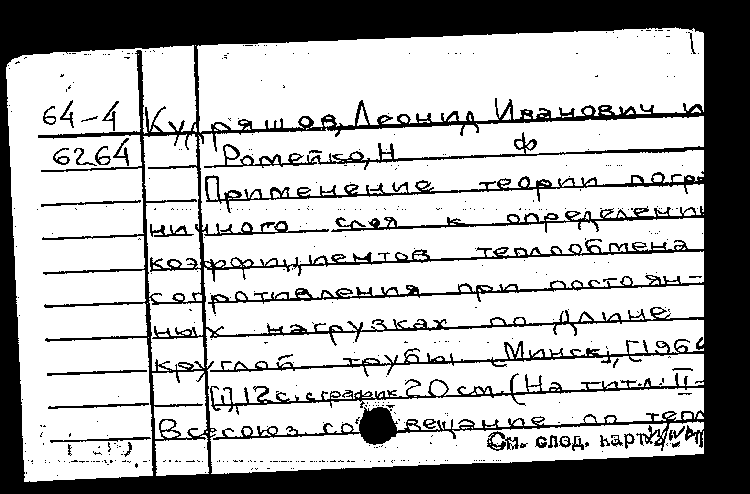 64-4 Кудряшов, Леонид Иванович и
6264 Ромейко, Н Ф
Применение теории погра
ничного слоя к определени
коэффициентов теплообмена
сопротивления при постоян-
ных нагрузках по длине
круглой трубы. [Минск], [1964
[1], 12 с. с график 20 см. (На тит. л.: II-
Всесоюз со вещание по тепл
См. след. карт